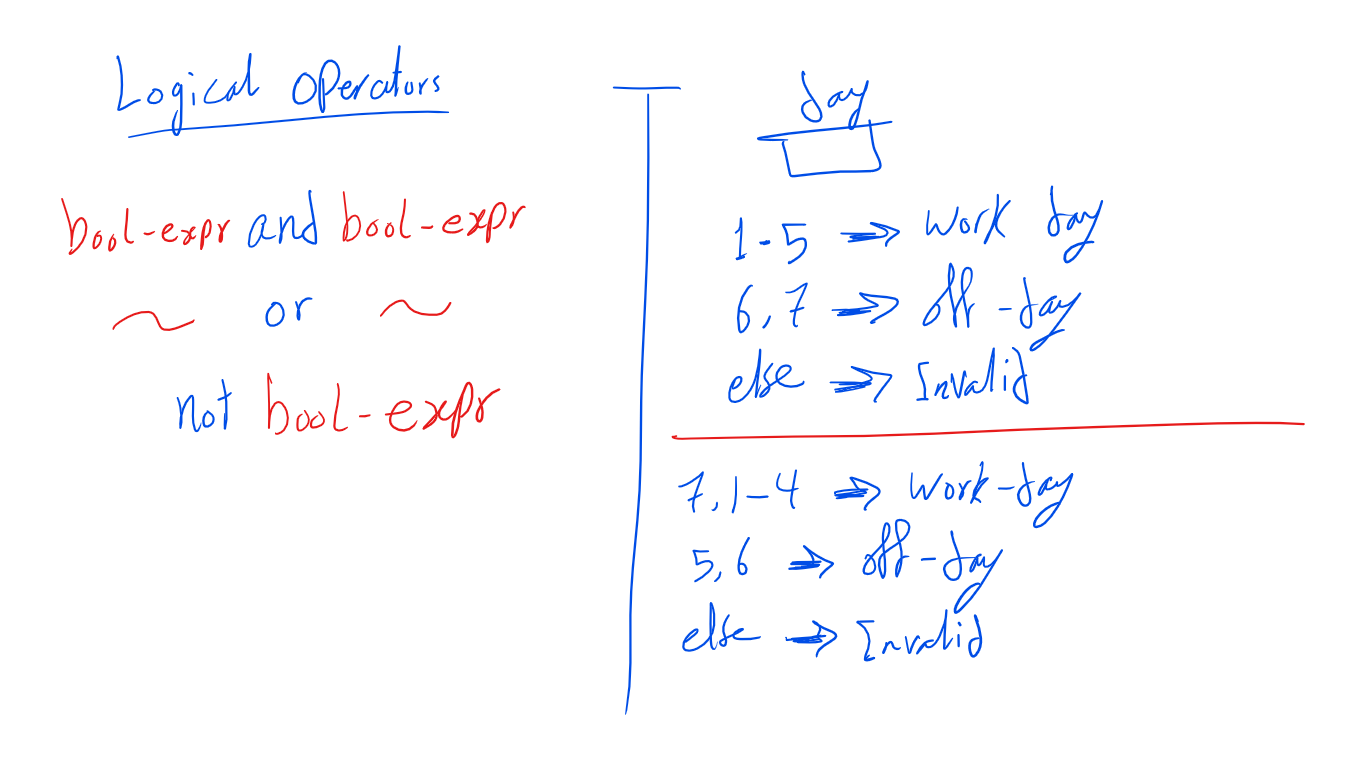 Logical operators
bool-expr and bool-expr
~ or ~
not bool-expr
day
1-5 ⇒ work day
6,7 ⇒ off-day
else ⇒ Invalid
7,1-4 ⇒ work-day
5,6 ⇒ off-day
else ⇒ Invalid